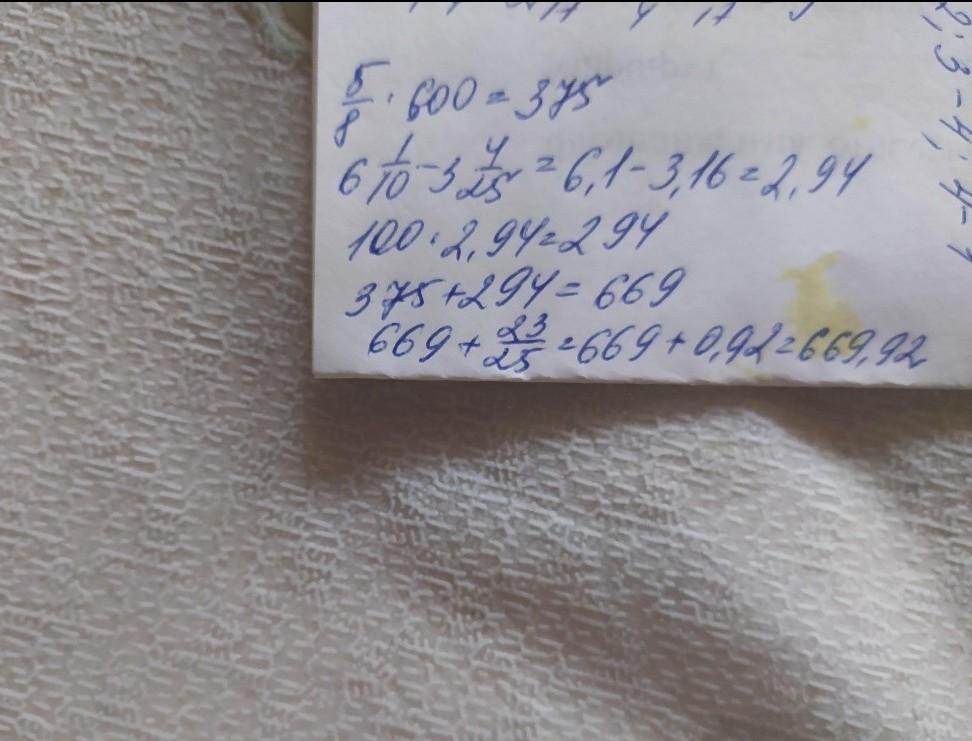 5/8 · 600 = 375
6 1/10 - 3 4/25 = 6,1 - 3,16 = 2,94
100 · 2,94 = 294
375 + 294 = 669
669 + 23/25 = 669 + 0,92 = 669,92